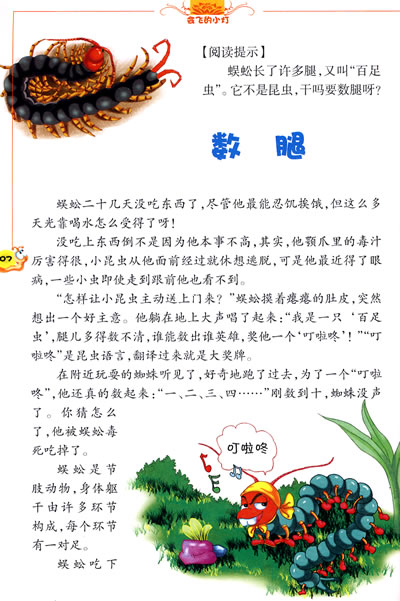 会飞的小灯
【阅读提示】
蜈蚣长了许多腿，又叫“百足
虫”。它不是昆虫，干吗要数腿呀？
数 腿
蜈蚣二十几天没吃东西了，尽管他最能忍饥挨饿，但这么多
天光靠喝水怎么受得了呀！
没吃上东西倒不是因为他本事不高，其实，他颚爪里的毒汁
厉害得很，小昆虫从他面前经过就休想逃脱，可是他最近得了眼
病，一些小虫即使走到跟前他也看不到。
“怎样让小昆虫主动送上门来？”蜈蚣摸着瘪瘪的肚皮，突然
想出一个好主意。他躺在地上大声唱了起来：“我是一只‘百足
虫’，腿儿多得数不清，谁能数出谁英雄，奖他一个‘叮啦咚’！”“叮
啦咚”是昆虫语言，翻译过来就是大奖牌。
在附近玩耍的蜘蛛听见了，好奇地跑了过去，为了一个“叮啦
咚”，他还真的数起来：“一、二、三、四……”刚数到十，蜘蛛没声
了。你猜怎么
了，他被蜈蚣毒
死吃掉了。
蜈蚣是节
肢动物，身体躯
干由许多环节
构成，每个环节
有一对足。
蜈蚣吃下
叮啦咚